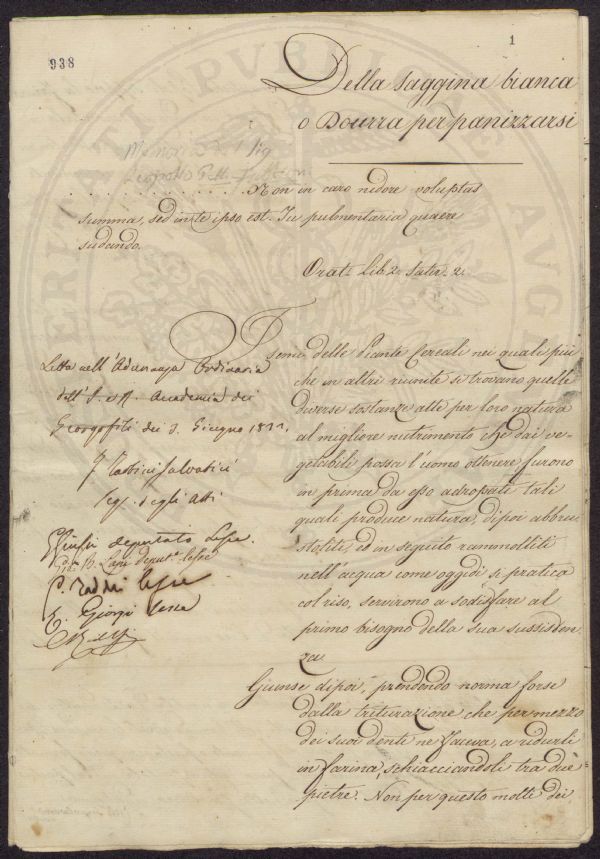 938
1
Della saggina bianca
o Dourra per panizzarsi
Memoria del Sig.
Leopoldo
. . . . . . . . . . . . . . . Non in caro nidore voluptas
summa, sed in te ipso est. Tu pulmentaria quaere
sudando.
Orat. Lib. 2. Satir. 2.
I semi delle Piante Cereali nei quali più
che in altri riunite si trovano quelle
diverse sostanze atte per loro natura
al migliore nutrimento che dai ve-
getabili possa l'uomo ottenere furono
in prima da esso adroprati tali
quali produce natura, dipoi abbru
stoliti, ed in seguito rammolliti
nell'acqua come oggidi si pratica
col riso, servirono a sodisfare al
primo bisogno della sua sussisten
za.
Giunse dipoi, prendendo norma forse
dalla triturazione che per mezzo
dei suoi denti ne faceva, a ridurli
in farina, schiacciandoli tra due
pietre. Non per questo molti dei
Letta nell'Adunanza Ordinaria
dell'I. e R. Accademia dei
Georgofili dei 3. Giugno
F. Tartini Salvatici
Seg. degli Atti
Giusti deputato Lesse.
B. Lapi deput. lesse
G. Raddi lesse
E. Giorgi lesse